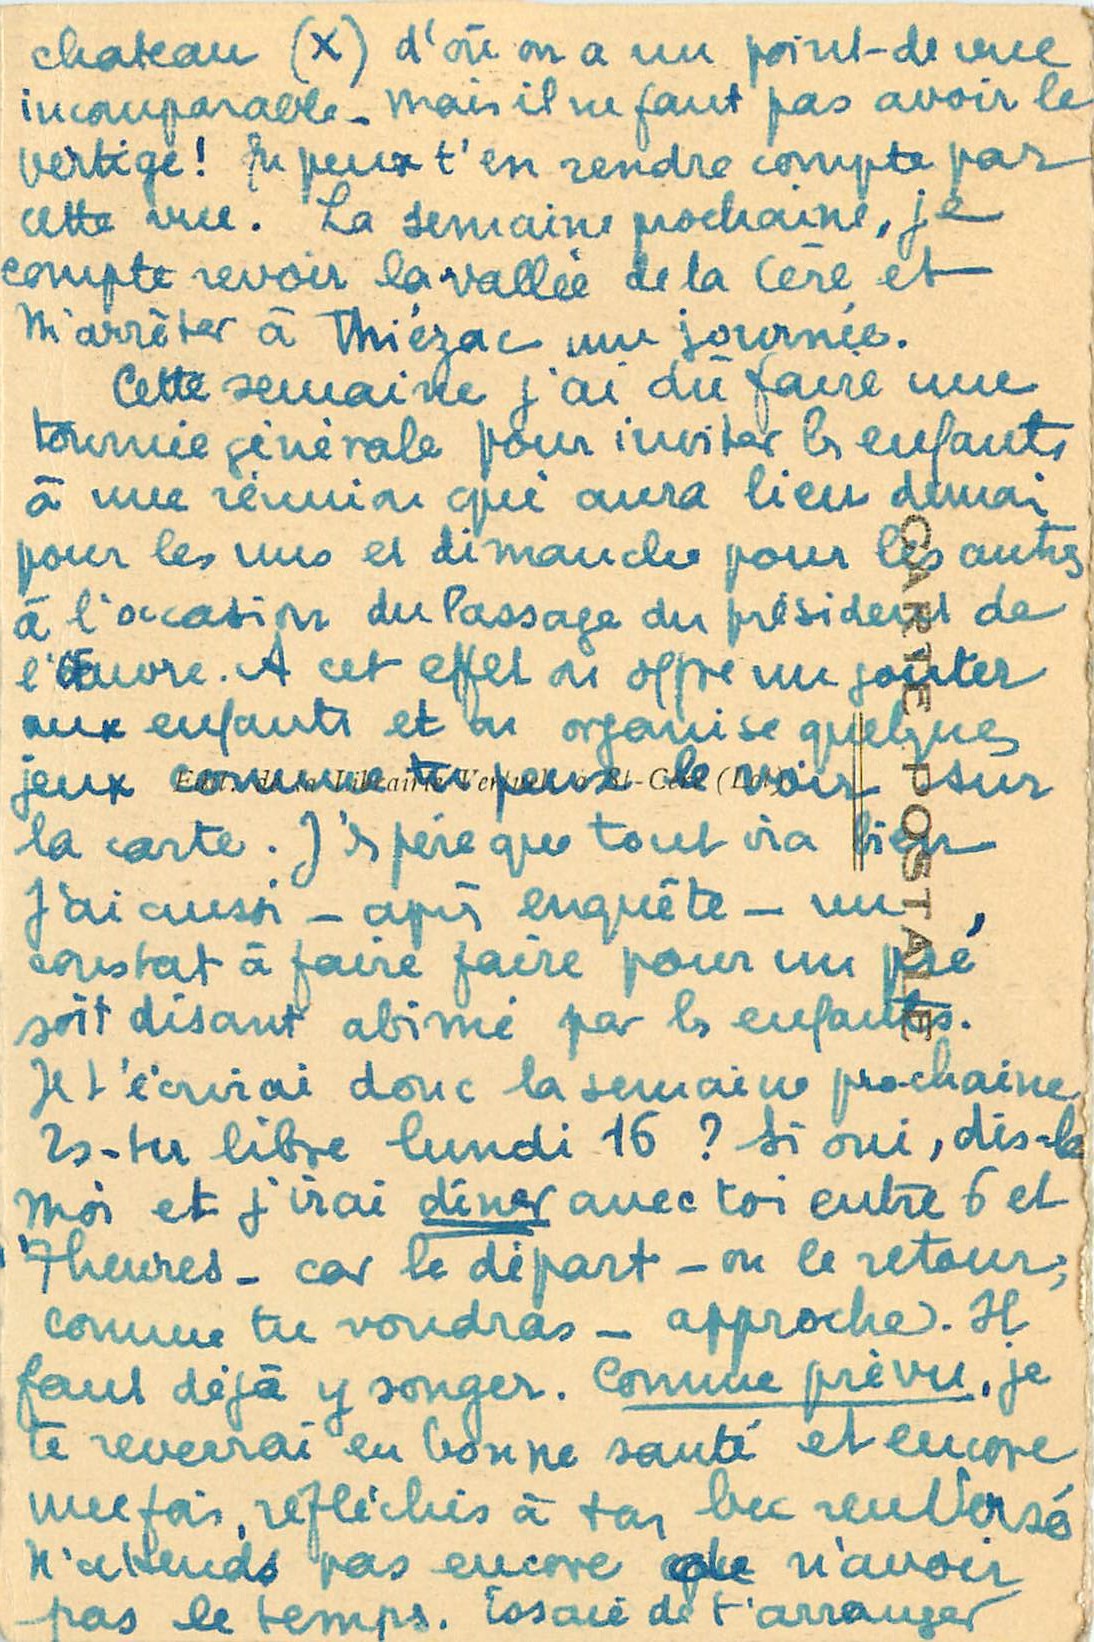 chateau (X) d'où on a un point-de vue
incomparable - mais il ne faut pas avoir le
vertige! Tu peux t'en rendre compte par
cette vue. La semaine prochaine, je
compte revoir la vallée de la Cère et
m'arrêter à Thiézac une journée.
Cette semaine j'ai dû faire une
tournée générale pour inviter les enfants
à une réunion qui aura lieu demai
pour les uns et dimanche pour les autres
à l'occasion du Passage du président de
l'Œuvre. A cet effet on offre un goûter
aux enfants et on organise quelques
jeux comme tu peux le voir sur
Edit. de la Librairie Vertuel, à St-Céré (Lot)
la carte. J'espère que tout ira bien
J'ai aussi - après enquête - un
constat à faire faire pour un pré
soit disant abimé par les enfants.
Je t'écrirai donc la semaine prochaine
Es-tu libre lundi 16 ? Si oui, dis-le
moi et j'irai dîner avec toi entre 6 et
7 heures - car le départ - ou le retour,
comme tu voudras - approche. Il
faut déjà y songer. Comme prévu, je
te reverrai en bonne santé et encore
une fois, réfléchis à ton bec renversé
N'attends pas encore de n'avoir
pas le temps. Essaie de t'arranger
CARTE POSTALE